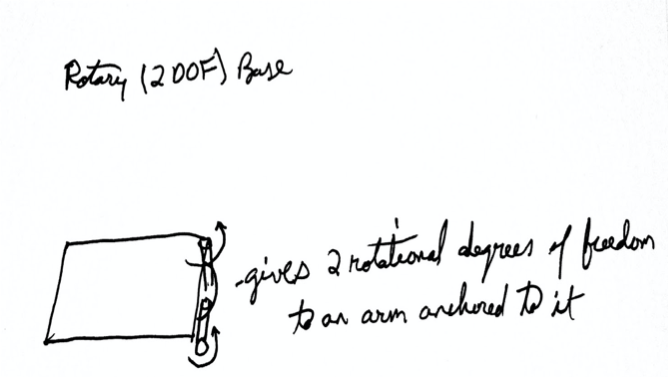 Rotary (2 DOF) Base
-gives 2 rotational degrees of freedom
to an arm anchored to it